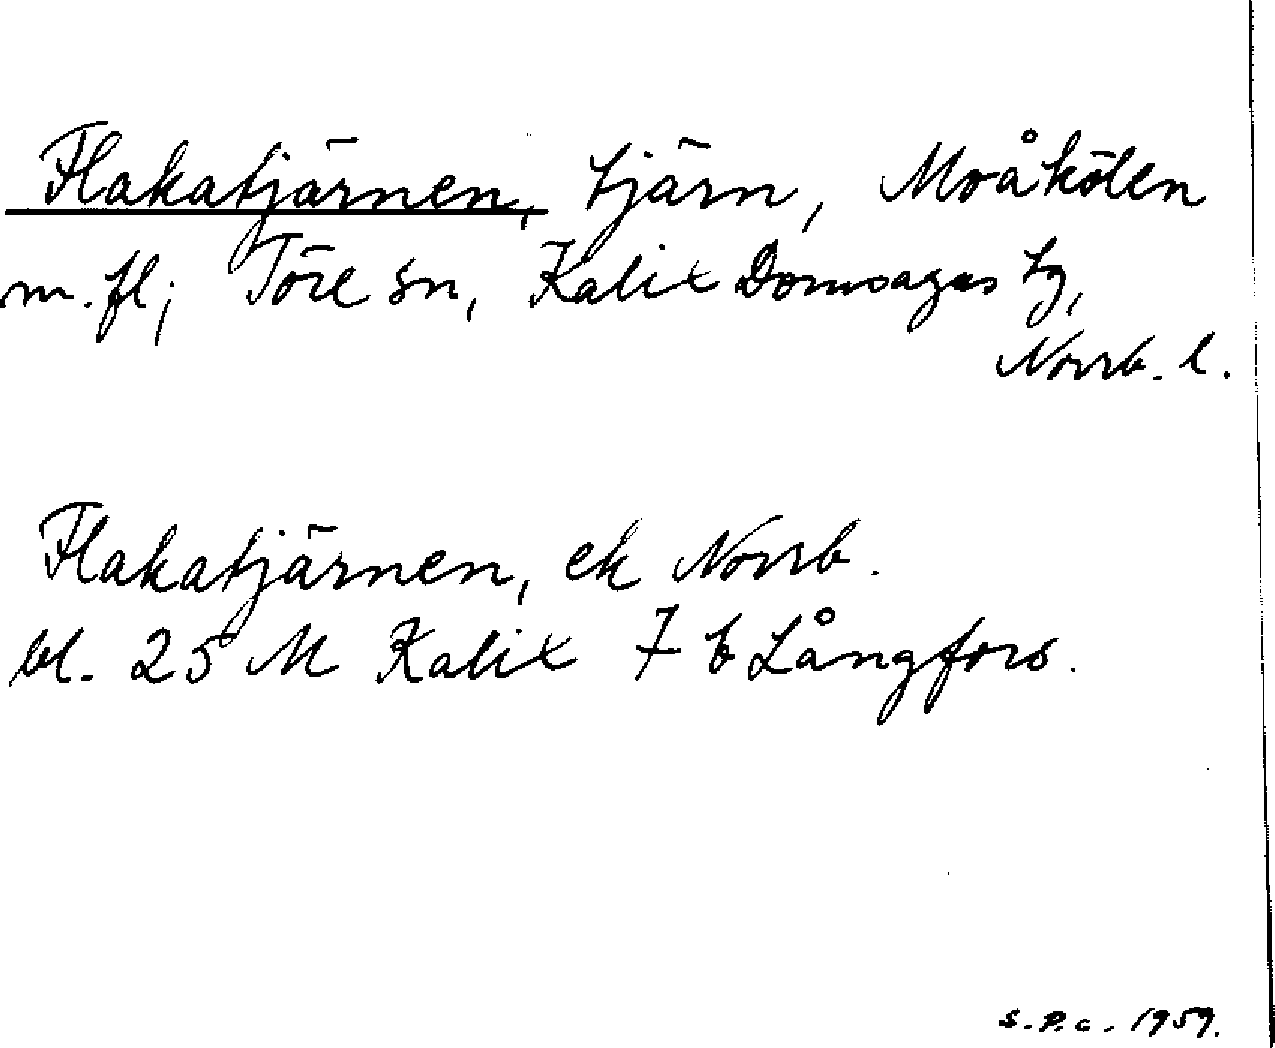 Flakatjärnen, tjärn, Moåkölen
m. fl; Töre sn, Kalix Domsagas tg,
Norrb. l.
Flakatjärnen, ek Norrb.
bl. 25 M Kalix 7 b Långfors.
S.P.c. 1959.